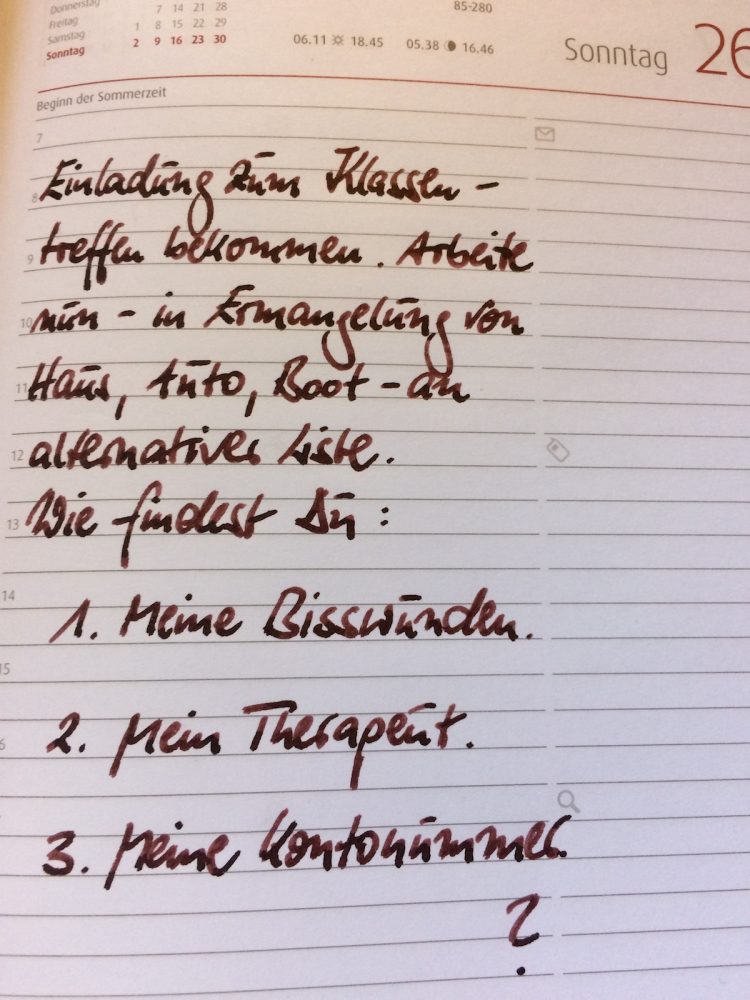 Donnerstag 7 14 21 28
Freitag 1 8 15 22 29
Samstag 2 9 16 23 30
Sonntag
85-280
06.11 18.45 05.38 16.46
Sonntag 26
Beginn der Sommerzeit
7
8 Einladung zum Klassen-
9 treffen bekommen. Arbeite
10 nun - in Ermangelung von
11 Haus, Auto, Boot - an
12 alternativer Liste.
13 Wie findest Du:
14
1. Meine Bisswunden.
15
2. Mein Therapeut.
3. Meine Kontonummer.
?